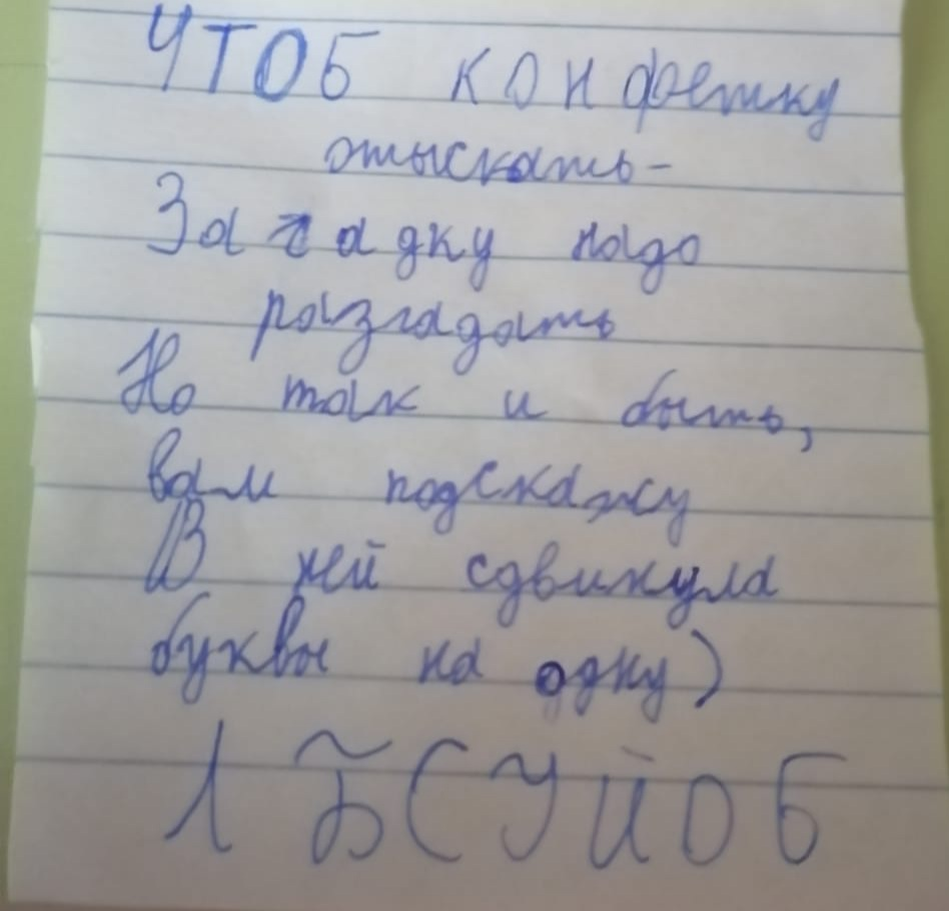 ЧТОБ конфетку
отыскать-
Загадку надо
разгадать
Но так и быть,
вам подскажу
В ней сдвинула
буквы на одну)
ЛБСУЙОБ